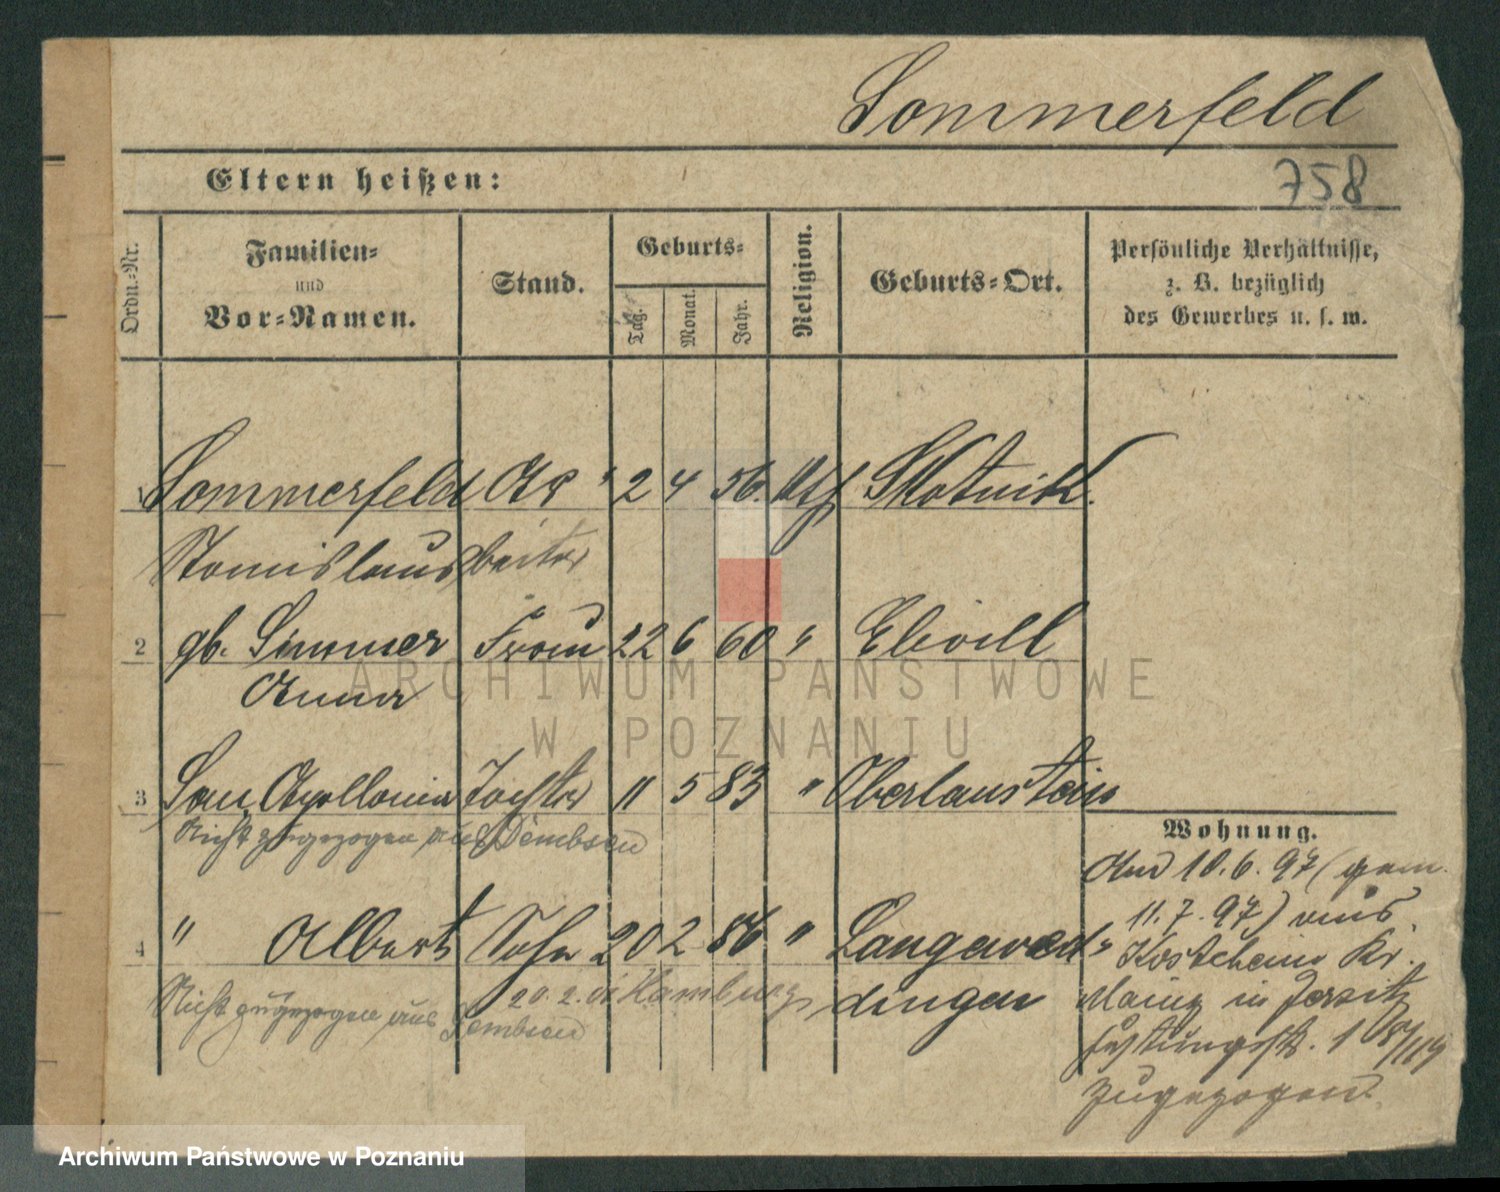 Sommerfeld
758
Eltern heißen:
Ordn.-Nr.
Familien-
und
Vor-Namen.
Stand.
Geburts-
Tag.
Monat.
Jahr.
Religion.
Geburts-Ort.
Persönliche Verhältnisse,
z. B. bezüglich
des Gewerbes u. s. w.
1 Sommerfeld Ar 2 4 56.
Stanislaus beiter
2 gb. Simmer Frau 22 6 60 " Eltvill
Anna
3 Apollonia Tochter 11 5 83 " Oberlanstein
Nicht zugezogen aus Dembsen
4 " Albert Sohn 20 2 86 " Langewed-
20.2.01 Hamburg dingen
Nicht zugezogen aus Dembsen
Wohnung.
And 10.6.97 (gem.
11.7.97) aus
Kostheim Kr.
Mainz in Jersitz
zugezogen.
ARCHIWUM PAŃSTWOWE
W POZNANIU
Archiwum Państwowe w Poznaniu